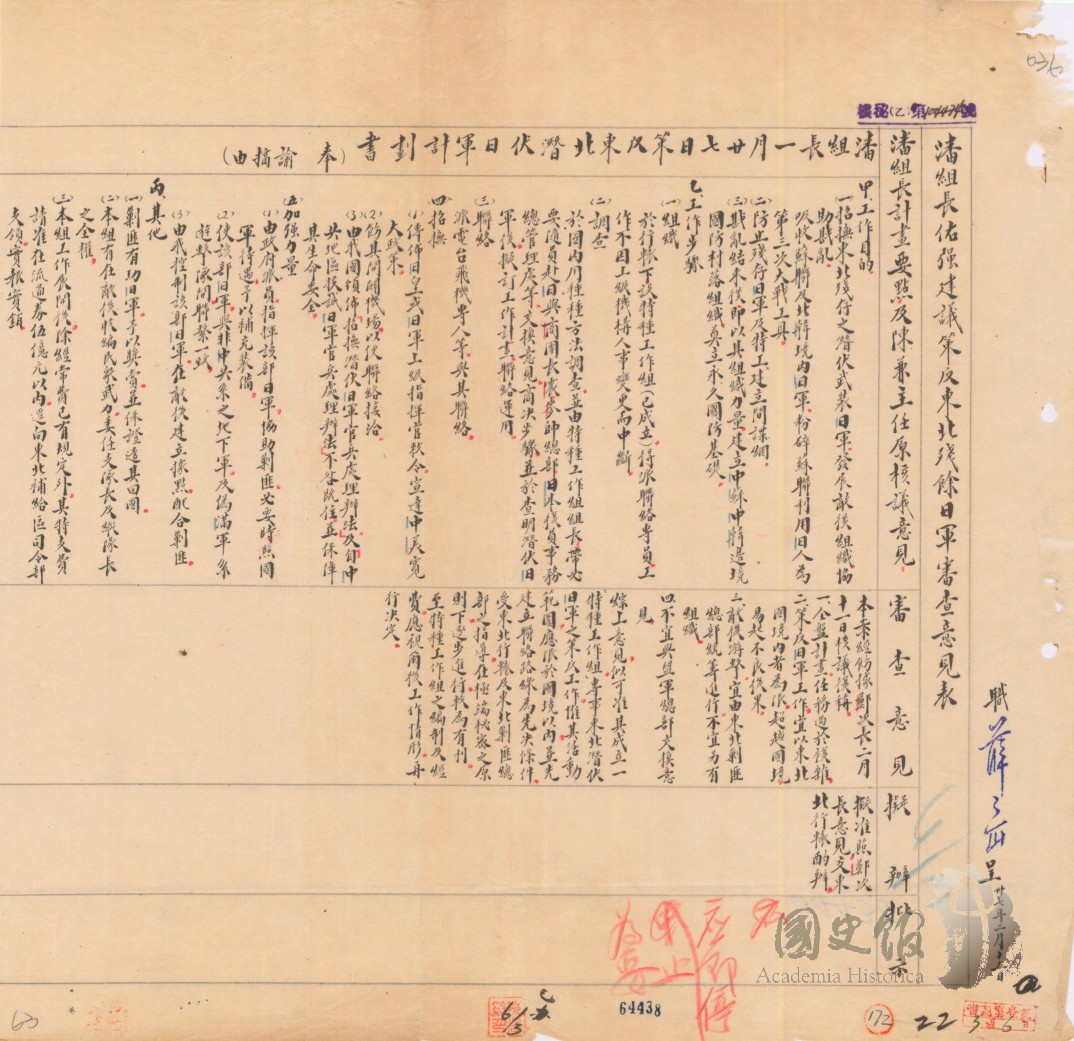 036
機秘(乙)第104474號
潘組長佑強建議策反東北殘餘日軍審查意見表
職薛岳呈
卅七年二月
潘組長計畫要點及陳兼主任原核議意見
審查意見
擬辦
批示
潘組長一月廿七日策反東北潛伏日軍計劃書(奉諭摘由)
甲、工作目的
(一)招撫東北殘存之潛伏武裝日軍發展敵後組織協
助戡亂。
吸收蘇聯及北韓境內日軍粉碎蘇聯利用日人為
第三次大戰工具。
(二)防止殘存日軍及特工建立間諜網。
(三)戡亂結束後即以其組織力量建立中蘇中韓邊境
國防村落組織奠立永久國防基礎。
乙、工作步驟
(一)組織
於行轅下設特種工作組(已成立)得派聯絡專員工
作不因上級機構人事變更而中斷
(二)調查
於國內用種種方法調查並由特種工作組組長帶必
要隨員赴日與商團長震參帥總部日本復員事務
總管理處等交換意見商決步驟並於查明潛伏日
軍後擬訂工作計畫聯絡運用。
(三)聯絡
派電台飛機專人等與其聯絡
四、招撫
(1)傳佈日皇或日軍上級指揮官赦令宣達中美寬
大政策。
(2)飭其開闢機場以便聯絡接洽
(3)由我國頒佈「招撫潛伏日軍官兵處理辦法」及「自中
共地區投誠日軍官兵處理辦法」不咎既往並保障
其生命安全。
(五)加強力量
(1)由政府派員指揮該部日軍協助剿匪必要時照國
軍待遇予以補充裝備。
(2)使該部日軍與非中共系之地下軍及偽滿軍系
游擊隊聯繫一致
(3)由我控制該部日軍在敵後建立據點配合剿匪。
丙、其他
(一)剿匪有功日軍予以獎賞並保證遣其回國
(二)本組有在敵後收編民眾武力委任支隊長及縱隊長
之全權。
(三)本組工作展開後除經常費已有規定外其特支費
請准在流通券伍億元以內逕向東北補給區司令部
支領實報實銷
本案經飭據鄭次長二月
十一日核議後稱
一、全盤計畫任務過於複雜
二、策反日軍工作宜以東北
國境內者為限超越國境
易起不良後果。
三、敵後游擊宜由東北剿匪
總部統籌進行不宜另有
組織。
四、不宜與盟軍總部交換意
見
綜上意見似可准其成立一
特種工作組專事東北潛伏
日軍之策反工作惟其活動
範圍應限於國境以內並先
建立聯絡路線為先決條件
受東北行轅及東北剿匪總
部之指導在極端秘密之原
則下逐步進行較為有利。
至特種工作組之編制及經
費應視爾後工作情形再
行決定。
擬准照鄭次
長意見交東
北行轅酌辦
應即停
止為要
國史館
Academia Historica
64438
6/3
172
22
3
6
63